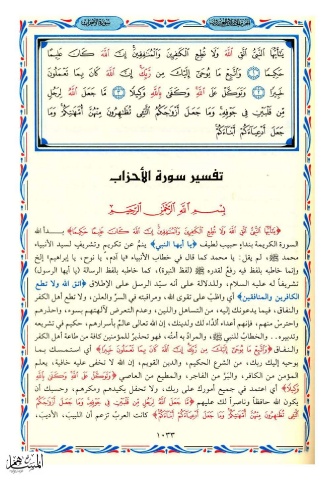 سورة الأحزاب
يَٰٓأَيُّهَا ٱلنَّبِيُّ ٱتَّقِ ٱللَّهَ وَلَا تُطِعِ ٱلْكَٰفِرِينَ وَٱلْمُنَٰفِقِينَ إِنَّ ٱللَّهَ كَانَ عَلِيمًا
حَكِيمًا ۝١ وَٱتَّبِعْ مَا يُوحَىٰٓ إِلَيْكَ مِن رَّبِّكَ إِنَّ ٱللَّهَ كَانَ بِمَا تَعْمَلُونَ
خَبِيرًا ۝٢ وَتَوَكَّلْ عَلَى ٱللَّهِ وَكَفَىٰ بِٱللَّهِ وَكِيلًا ۝٣ مَّا جَعَلَ ٱللَّهُ لِرَجُلٍ
مِّن قَلْبَيْنِ فِي جَوْفِهِۦ وَمَا جَعَلَ أَزْوَٰجَكُمُ ٱلَّٰٓـِٔي تُظَٰهِرُونَ مِنْهُنَّ أُمَّهَٰتِكُمْ وَمَا
جَعَلَ أَدْعِيَآءَكُمْ أَبْنَآءَكُمْ
تفسير سورة الأحزاب
بِسْمِ ٱللَّهِ ٱلرَّحْمَٰنِ ٱلرَّحِيمِ
﴿يَٰٓأَيُّهَا ٱلنَّبِيُّ ٱتَّقِ ٱللَّهَ وَلَا تُطِعِ ٱلْكَٰفِرِينَ وَٱلْمُنَٰفِقِينَ إِنَّ ٱللَّهَ كَانَ عَلِيمًا حَكِيمًا﴾ بدأ الله
السورة الكريمة بنداءٍ حبيب لطيف ﴿يا أيها النبي﴾ ينمُّ عن تكريم وتشريف لسيد الأنبياء
محمد ﷺ، لم يقل: يا محمد كما قال في خطاب الأنبياء «يا آدم، يا نوح، يا إبراهيم» إلخ
وإنما خاطبه بلفظ فيه رفعٌ لقدره ﷺ (لفظ النبوة)، كما خاطبه بلفظ الرسالة (يا أيها الرسول)
تشريفاً له عليه السلام، وللدلالة على أنه سيّد الرسل على الإطلاق ﴿اتق الله ولا تطع
الكافرين والمنافقين﴾ أي واظبْ على تقوى الله، ومراقبته في السرِّ والعلن، ولا تطع أهل الكفر
والنفاق، فيما يدعونك إليه، من التساهل واللين، وعدم التعرض لآلهتهم بسوء، واحذرهم
واحترسْ منهم، فإنهم أعداء ألدَّاء لك ولدينك، إن الله تعالى عالمٌ بأسرارهم، حكيم في تشريعه
وتدبيره.. والخطابُ للنبي ﷺ، والمراد به أمته، فهو تحذيرٌ للمؤمنين كافة من طاعة أهل الكفر
والنفاق ﴿وَٱتَّبِعْ مَا يُوحَىٰٓ إِلَيْكَ مِن رَّبِّكَ إِنَّ ٱللَّهَ كَانَ بِمَا تَعْمَلُونَ خَبِيرًا﴾ أي استمسك بما
يوحيه إليك ربك، من الشرع الحكيم، والدين القويم، إن الله لا تخفى عليه خافية، يعلم
المؤمن من الكافر، والبَرَّ من الفاجر، والمطيع من العاصي ﴿وَتَوَكَّلْ عَلَى ٱللَّهِ وَكَفَىٰ بِٱللَّهِ
وَكِيلًا﴾ أي اعتمد في جميع أمورك على ربك، ولا تحفل بكيدهم ومكرهم، وحسبك أن
يكون الله حافظاً وناصراً لك عليهم ﴿مَّا جَعَلَ ٱللَّهُ لِرَجُلٍ مِّن قَلْبَيْنِ فِي جَوْفِهِۦ وَمَا جَعَلَ أَزْوَٰجَكُمُ
ٱلَّٰٓـِٔي تُظَٰهِرُونَ مِنْهُنَّ أُمَّهَٰتِكُمْ وَمَا جَعَلَ أَدْعِيَآءَكُمْ أَبْنَآءَكُمْ﴾ كانت العرب تزعم أن اللبيب، الأديب،
١٠٣٣